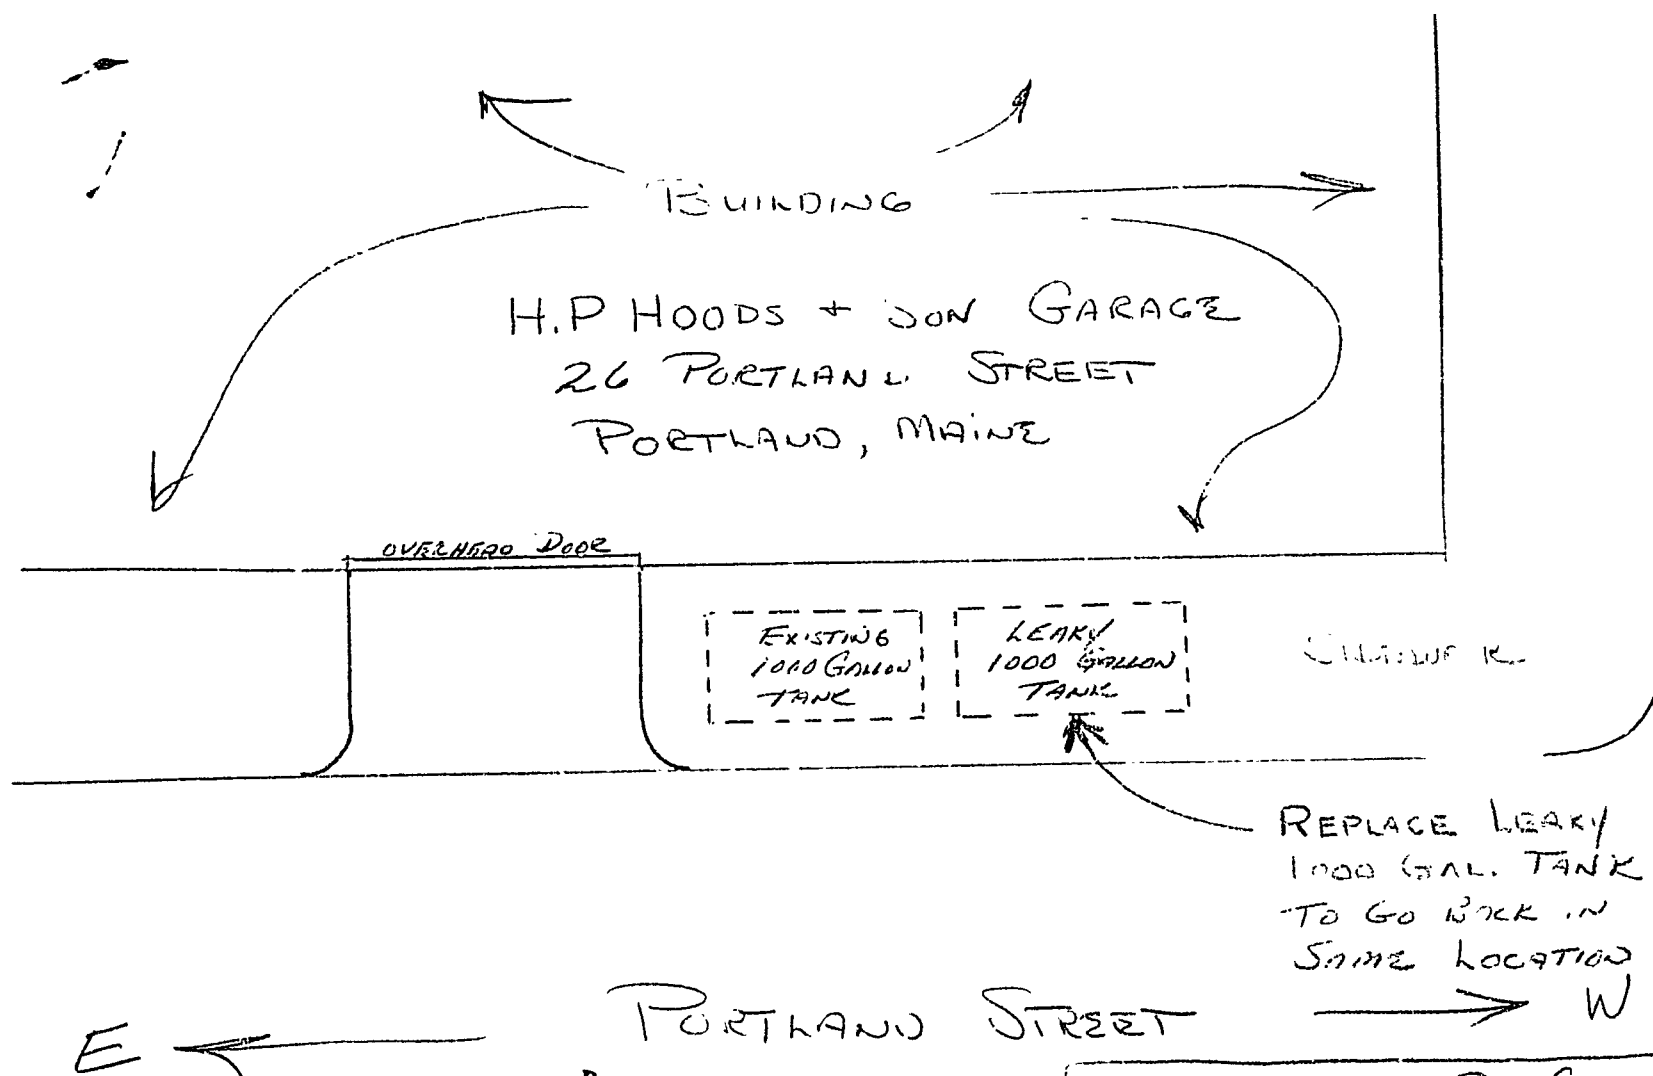 BUILDING
H.P HOODS + SON GARAGE
26 PORTLAND STREET
PORTLAND, MAINE
OVERHEAD DOOR
EXISTING
1000 GALLON
TANK
LEAKY
1000 GALLON
TANK
REPLACE LEAKY
1000 GAL. TANK
TO GO BACK IN
SAME LOCATION
PORTLAND STREET
W
E